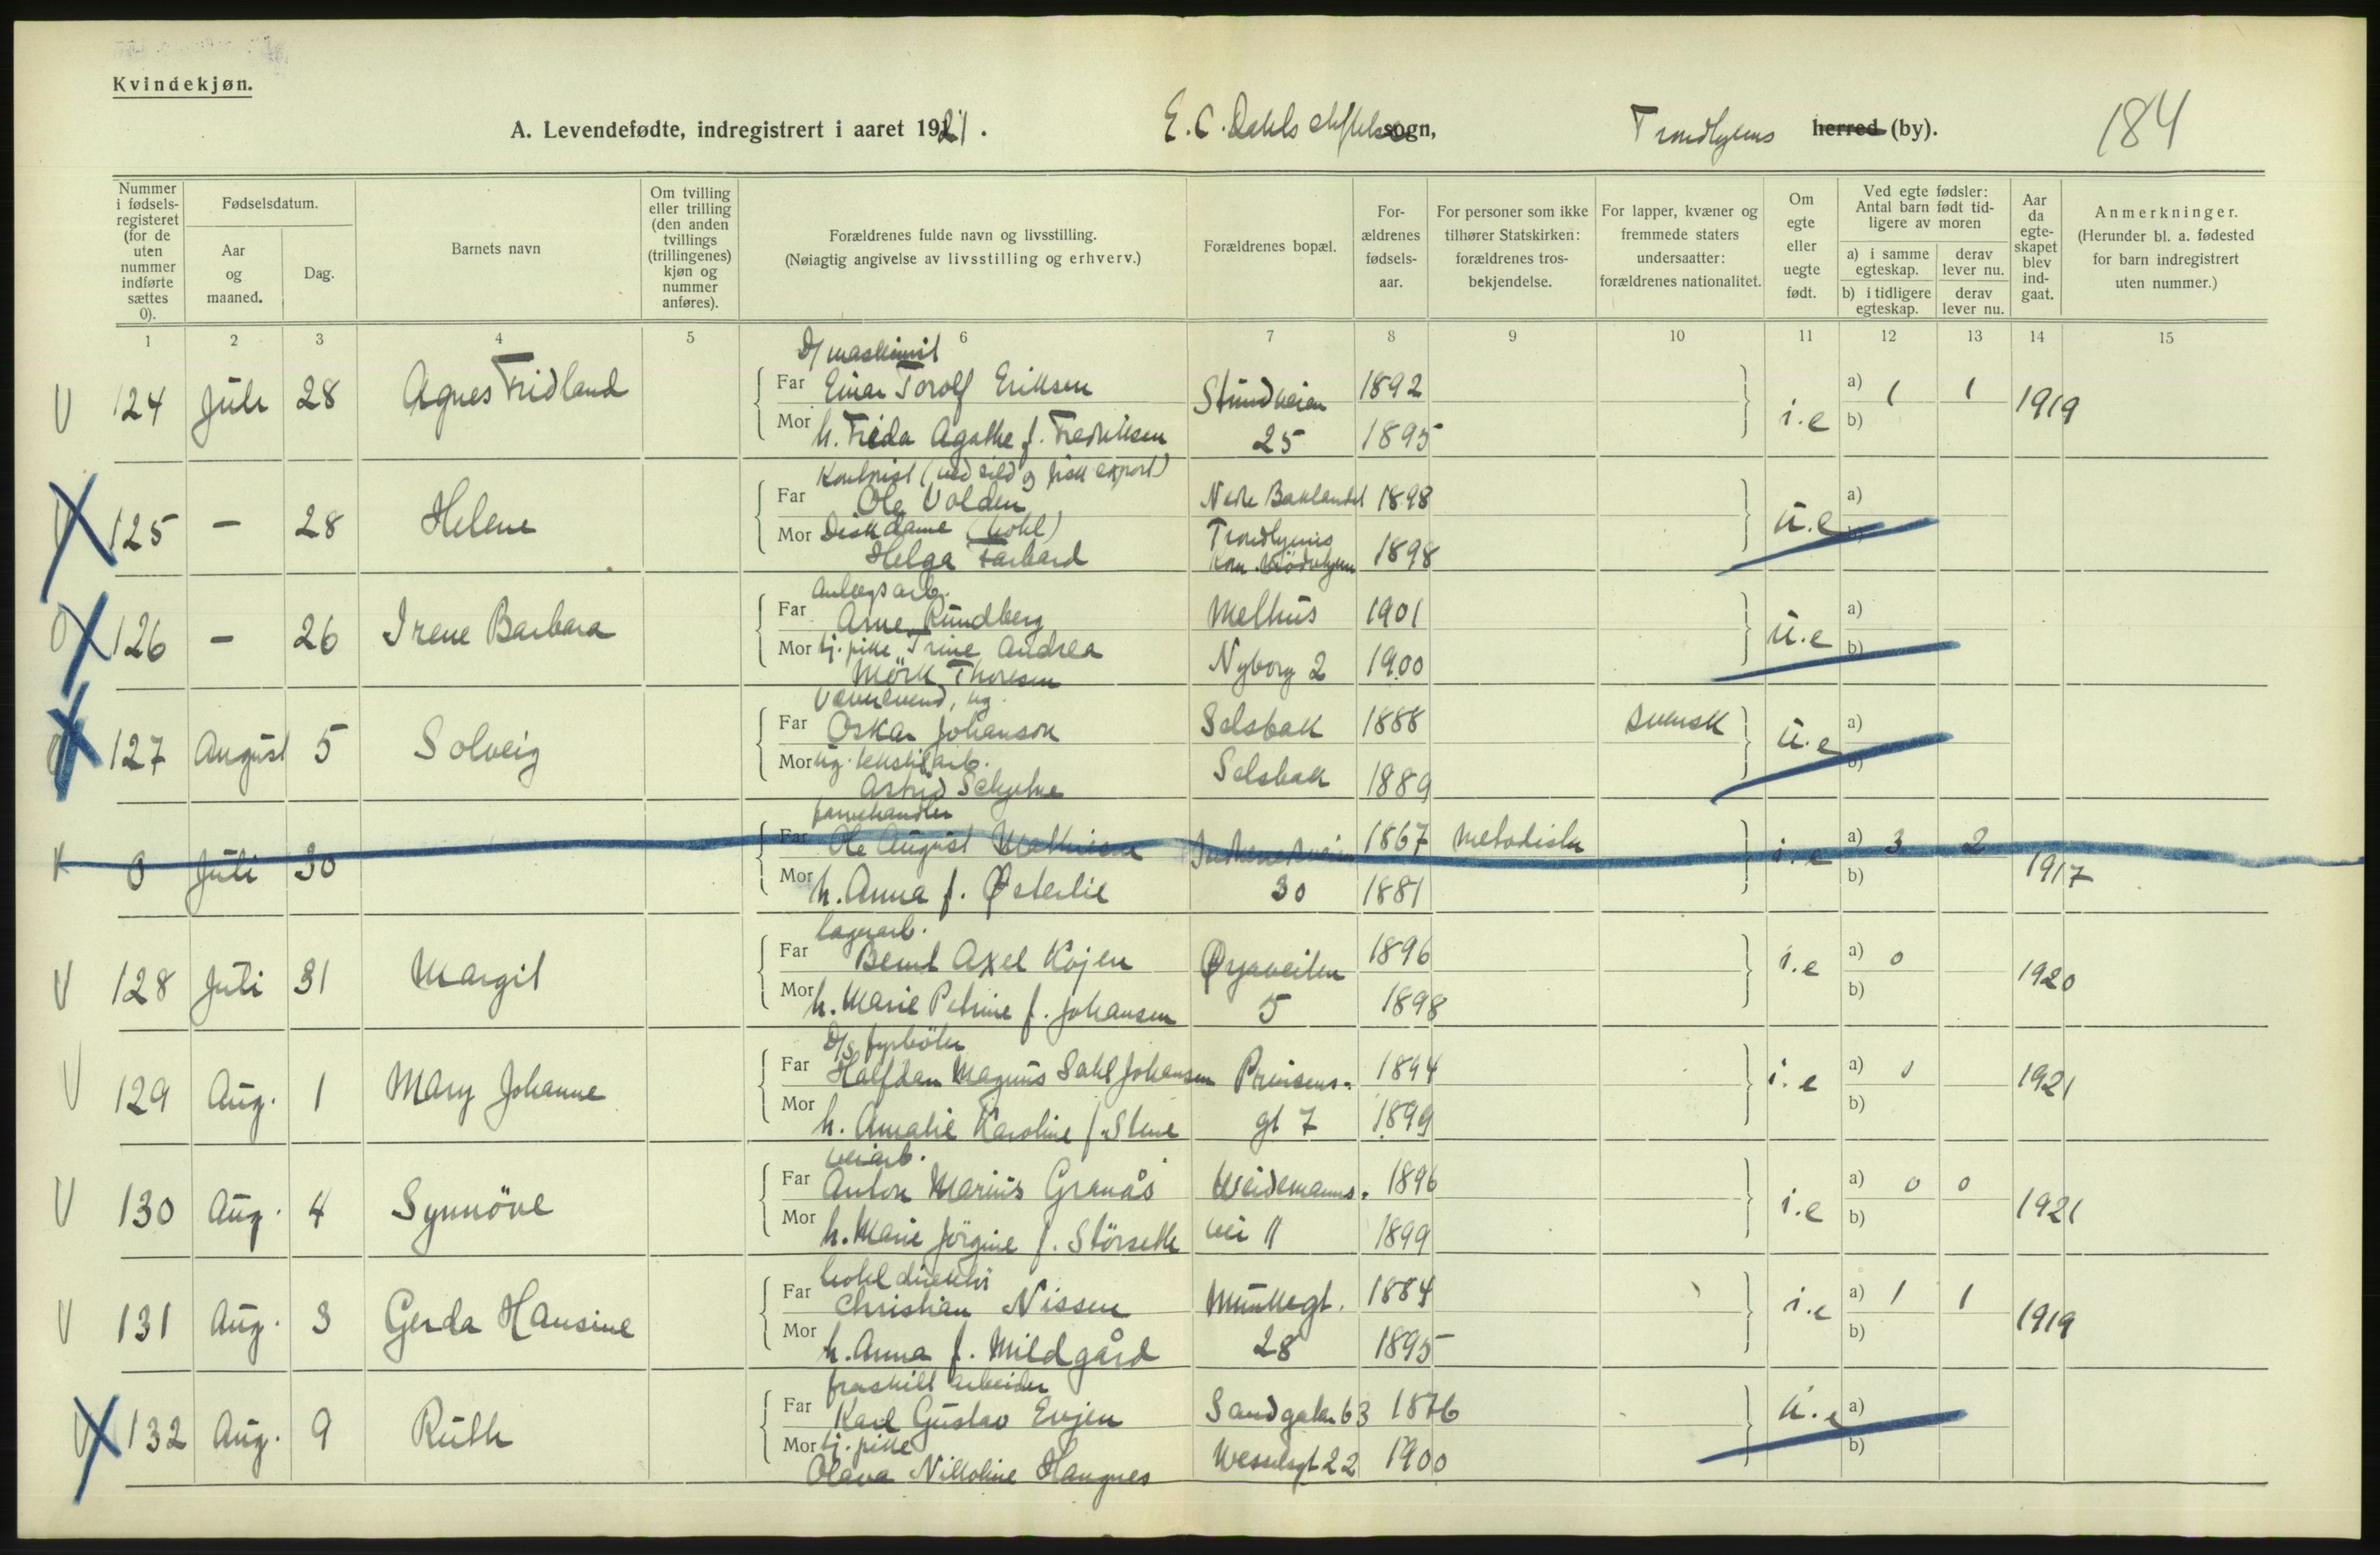 Kvindekjøn.
A. Levendefødte, indregistrert i aaret 1921. E. C. Dahls stiftelse sogn, Trondhjems herred (by). 184
Nummer i fødsels-registeret (for de uten nummer indførte sættes 0).
Fødselsdatum.
Aar og maaned.
Dag.
Barnets navn
Om tvilling eller trilling (den anden tvillings (trillingenes) kjøn og nummer anføres).
Forældrenes fulde navn og livsstilling.
(Nøiagtig angivelse av livsstilling og erhverv.)
Forældrenes bopæl.
For-ældrenes fødsels-aar.
For personer som ikke tilhører Statskirken: forældrenes tros-bekjendelse.
For lapper, kvæner og fremmede staters undersaatter: forældrenes nationalitet.
Om egte eller uegte født.
Ved egte fødsler: Antal barn født tid-ligere av moren
a) i samme egteskap.
derav lever nu.
b) i tidligere egteskap.
derav lever nu.
Aar da egte-skapet blev ind-gaat.
Anmerkninger.
(Herunder bl. a. fødested for barn indregistrert uten nummer.)
1 2 3 4 5 6 7 8 9 10 11 12 13 14 15
D/ maskinist
V 124 Juli 28 Agnes Fridland Far Einar Torolf Eriksen Strindveien 1892 i.e a) 1 1 1919
Mor h. Frida Agathe f. Fredriksen 25 1895 b)
Kontorist (ved sild og fisk export)
125 — 28 Helene Far Ole Volden Nedre Baklandet 1898 u.e a)
Mor Diskdame (hotel) Trondhjems
Helga 1898 b)
Anlegsarb.
126 — 26 Irene Barbara Far Arne Rundberg Melhus 1901 u.e a)
Mor tj. pike Trine Andrea Nyborg 2 1900 b)
Mörk Thoresen
ug.
127 August 5 Solveig Far Oskar Johanson Selsbak 1888 svensk u.e a)
Mor ug. tekstilarb. Selsbak 1889 b)
Astrid
farvehandler
0 Juli 30 Far Ole August Mathiesen 1867 Metodister i.e a) 3 2 1917
Mor h. Anna f. Østerlie 30 1881 b)
lagerarb.
V 128 Juli 31 Margit Far Bernt Axel Kojen Ørjaveiten 1896 i.e a) 0 1920
Mor h. Marie Petrine f. Johansen 5 1898 b)
D/s fyrböter
V 129 Aug. 1 Mary Johanne Far Halfdan Magnus Dahl Johansen Prinsens- 1894 i.e a) 0 1921
Mor h. Amalie Karoline f. Stene gt 7 1899 b)
veiarb.
V 130 Aug. 4 Synnöve Far Anton Marius Granås Weidemanns- 1896 i.e a) 0 0 1921
Mor h. Marie Jörgine f. Störseth vei 11 1899 b)
hotel direktör
V 131 Aug. 3 Gerda Hansine Far Christian Nissen Munkegt. 1884 i.e a) 1 1 1919
Mor h. Anna f. Mildgård 28 1895 b)
fraskilt arbeider
132 Aug. 9 Ruth Far Karl Gustav Evjen Sandgaten 63 1876 u.e a)
Mor tj. pike Wesselsgt 22 1900 b)
Olava Nikoline Haugnes